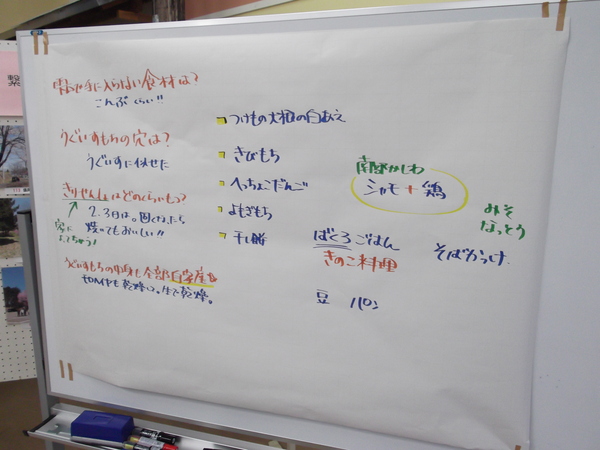 手に入らない食材は?
こんぶくらい!!
うぐいすもちの穴は?
うぐいすに似せた
きりせんしょはどのくらいもつ?
2.3日は。固くなったら
焼いてもおいしい!!
家に
よってちがう!
うぐいすもちの中身も全部自家産
も乾燥。生で乾燥。
つけもの大根の白あえ
きびもち
へっちょこだんご
よもぎもち
干し餅
南部かしわ
シャモ+鶏
みそ
なっとう
ばくろごはん
きのこ料理
そばかっけ
豆 パン